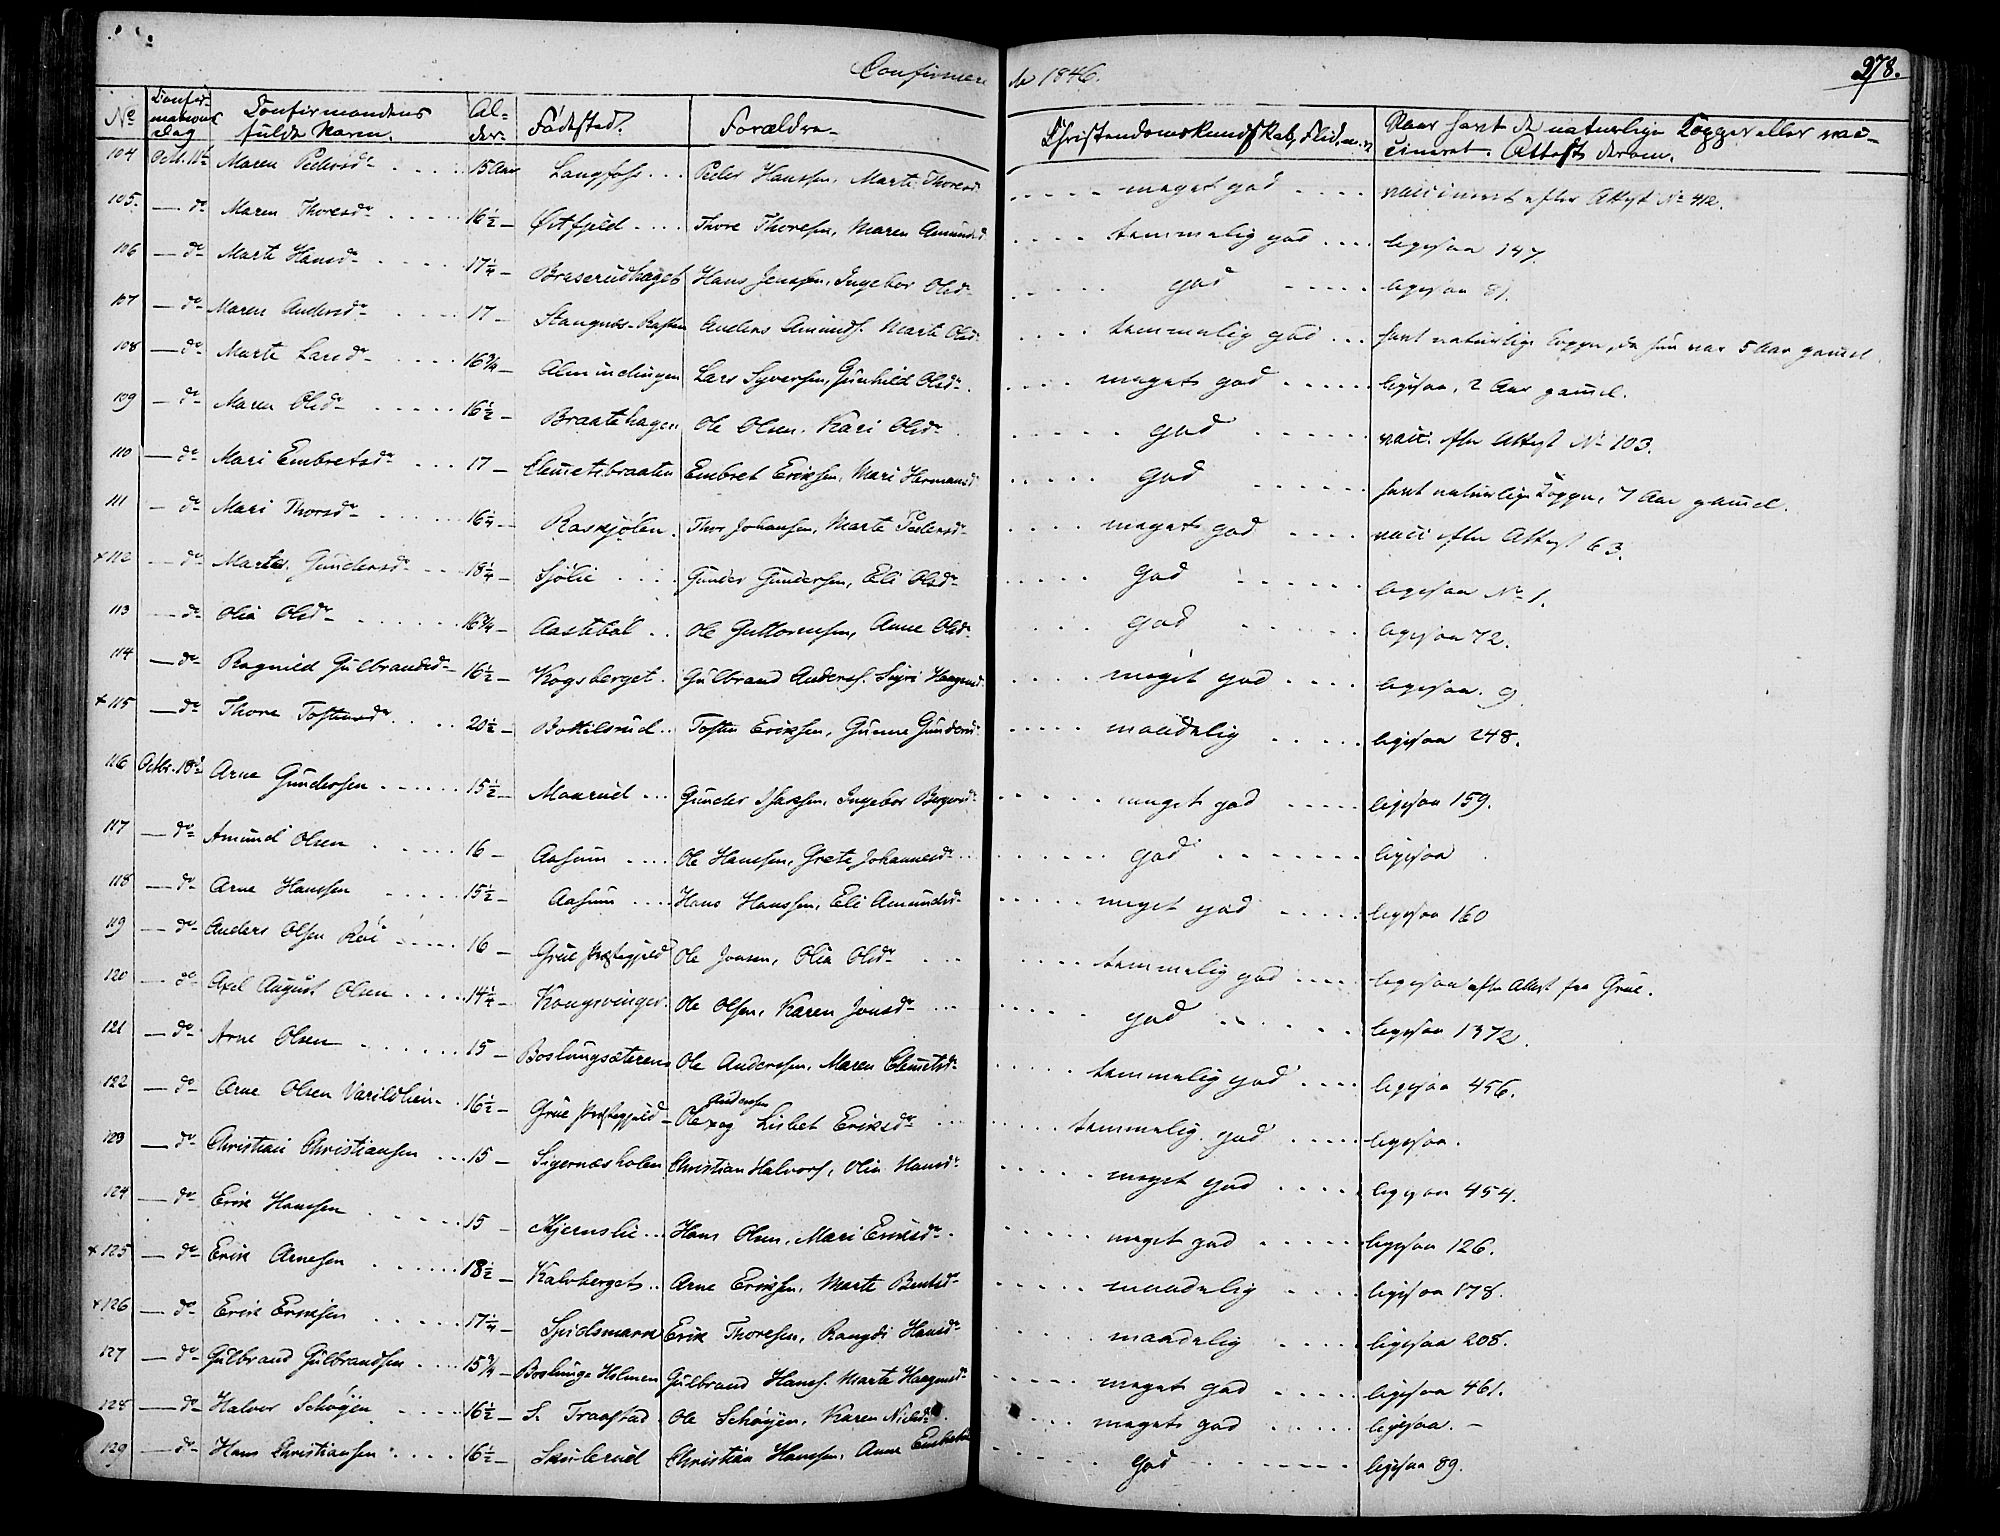 Confirmerede 1846.
278.
No Confirmations Dag Confirmandens fulde Navn. Alder Fødested. Forældre Christendomskundskab, Flid, Naar havt de naturlige Kopper eller vaccineret. Attest derom.
104 Octb. 11te Maren Pedersdr 15 Aar Langfoss Peder Hanssen, Marte Thoresdr meget god vaccineret efter Attest No 412.
105. — do Maren Thoresdr 16½ — Østfjeld Thore Thoresen, Maren Amundsd temmelig god ligesaa 147.
106 — do Marte Hansdr 17¼ — Braserudhaget Hans Jenssen, Ingebor Olsdr god ligesaa 81.
107 — do Maren Andersdr 17 — Stangnes-Kasten Anders Amunds. Marte Olsdr temmelig god havt naturlige Kopper, da hun var 5 Aar gammel.
108 — do Marte Larsdr 16¾ — Almindingen Lars Syversen, Gunhild Olsdr. meget god ligesaa, 2 Aar gammel.
109 — do Maren Olsdr 16½ — Braatehagen Ole Olsen, Kari Olsdr god vacc. efter Attest No 103.
110 — do Mari Embretsdr 17 — Clemetsbraaten Embret Eriksen, Mari Hermansd god havt naturlige Kopper, 7 Aar gammel.
111 — do Mari Thorsdr 16¼ — Raskjølen. Thor Johansen, Marte Pedersdr meget god vacc efter Attest 63.
+112 — do Marte Gundersdr 18¼ — Sjölie Gunder Gundersen, Eli Olsdr god ligesaa No 1.
113 — do Olia Olsdr 16¾ — Aastebøl Ole Guttormsen, Anne Olsdr. god ligesaa 72.
114 — do Ragnild Gulbrandsd 16½ — Kogsberget. Gulbrand Anders. Sigri Haagensd meget god ligesaa. 9
+115 — do Thore Tostensdr 20½ — Bottilsrud Tosten Eriksen, Gunne Gundersd maadelig ligesaa 248.
116 Octbr. 18de Arne Gundersen 15½ — Maurud Gunder Isaksen, Ingebor Bergersdr meget god ligesaa 159.
117 — do Amund Olsen 16 — Aasum Ole Hanssen, Grete Johannesdr god ligesaa
118 — do Arne Hanssen 15½ — Aasum Hans Hanssen, Eli Amundsdr meget god ligesaa 160
119 — do Anders Olsen Röi 16 — Grue Præstegjeld Ole Jonsen, Olia Olsdr temmelig god ligesaa efter Attest fra Grue.
120 — do Axel August Olsen 14¼ — Kongsvinger. Ole Olsen, Karen Jonsdr god ligesaa 1372.
121 — do Arne Olsen 15 — Boslungsæteren Ole Anderssen, Maren Clemetsdr temmelig god ligesaa 456.
122 — do Arne Olsen Varildlien 16½ — Grue Præstegjeld Ole Andersen og Lisbet Eriksdr temmelig god ligesaa.
123 — do Christian Christiansen 15 — Sigernesholen Christian Halvors., Olia Hansdr meget god ligesaa 454.
124 — do Erik Hanssen 15 — Kjernslie Hans Olsen, Mari Eriksdr. meget god ligesaa 126.
+125 — do Erik Arnesen 18½ — Kalvberget Arne Eriksen, Marte Bentsdr maadelig ligesaa 178.
+126 — do Erik Eriksen 17¼ — Spidsmark Erik Thoresen, Rangdi Hansdr maadelig ligesaa 208.
127 — do Gulbrand Gulbrandsen 15¾ — Boslunge Holmen Gulbrand Hanss. Marte Haagensdr meget god ligesaa 461.
128 — do Halvor Schöyen 16½ — S. Traastad Ole Schöyen, Karen Nielsdr meget god ligesaa. —
129 — do Hans Christiansen 16½ — Skinlerud Christian Hanssen, Anne Embretsd god ligesaa 89.